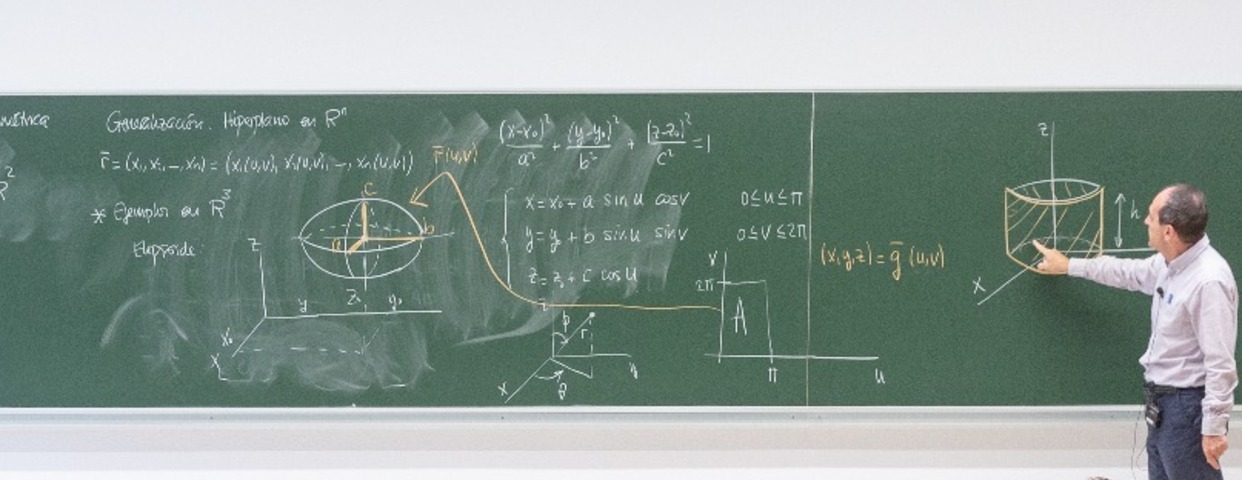 Generalización. Hiperplano en Rⁿ
r̄ = (x₁, x₂, –, xₙ) = (x₁(u,v), x₂(u,v), –, xₙ(u,v))
* Ejemplos en R³
Elipsoide:
z
c
a
b
z₀
y
y₀
x₀
x
r̄(u,v)
(x-x₀)²/a² + (y-y₀)²/b² + (z-z₀)²/c² = 1
x = x₀ + a sin u cos v 0≤u≤π
y = y₀ + b sin u sin v 0≤v≤2π
z = z₀ + c cos u
z
φ
r
x
θ
y
v
2π
A
π
u
(x,y,z) = ḡ (u,v)
z
h
x